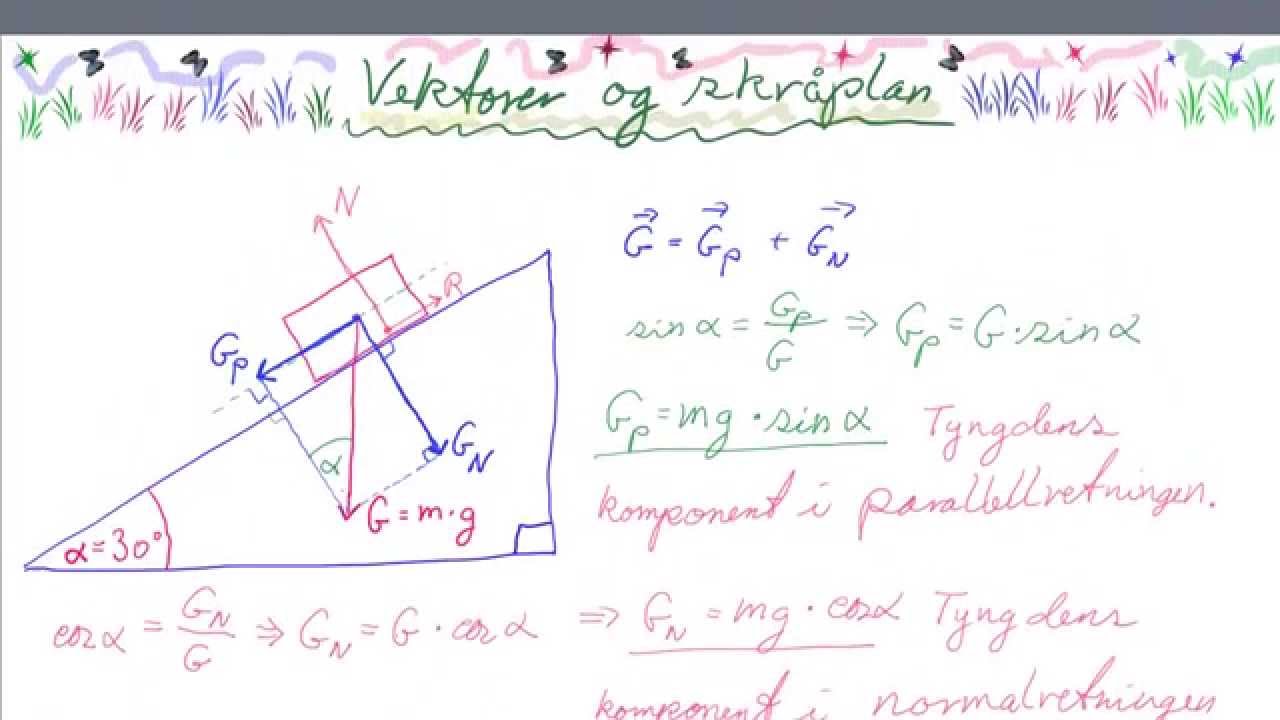 Vektorer og skråplan
N
R
G⃗ = G⃗_p + G⃗_N
sin α = G_p / G ⇒ G_p = G · sin α
G_p
G_p = mg · sin α Tyngdens
komponent i parallellretningen.
G_N
α
G = m · g
α = 30°
cos α = G_N / G ⇒ G_N = G · cos α ⇒ G_N = mg · cos α Tyngdens
komponent i normalretningen